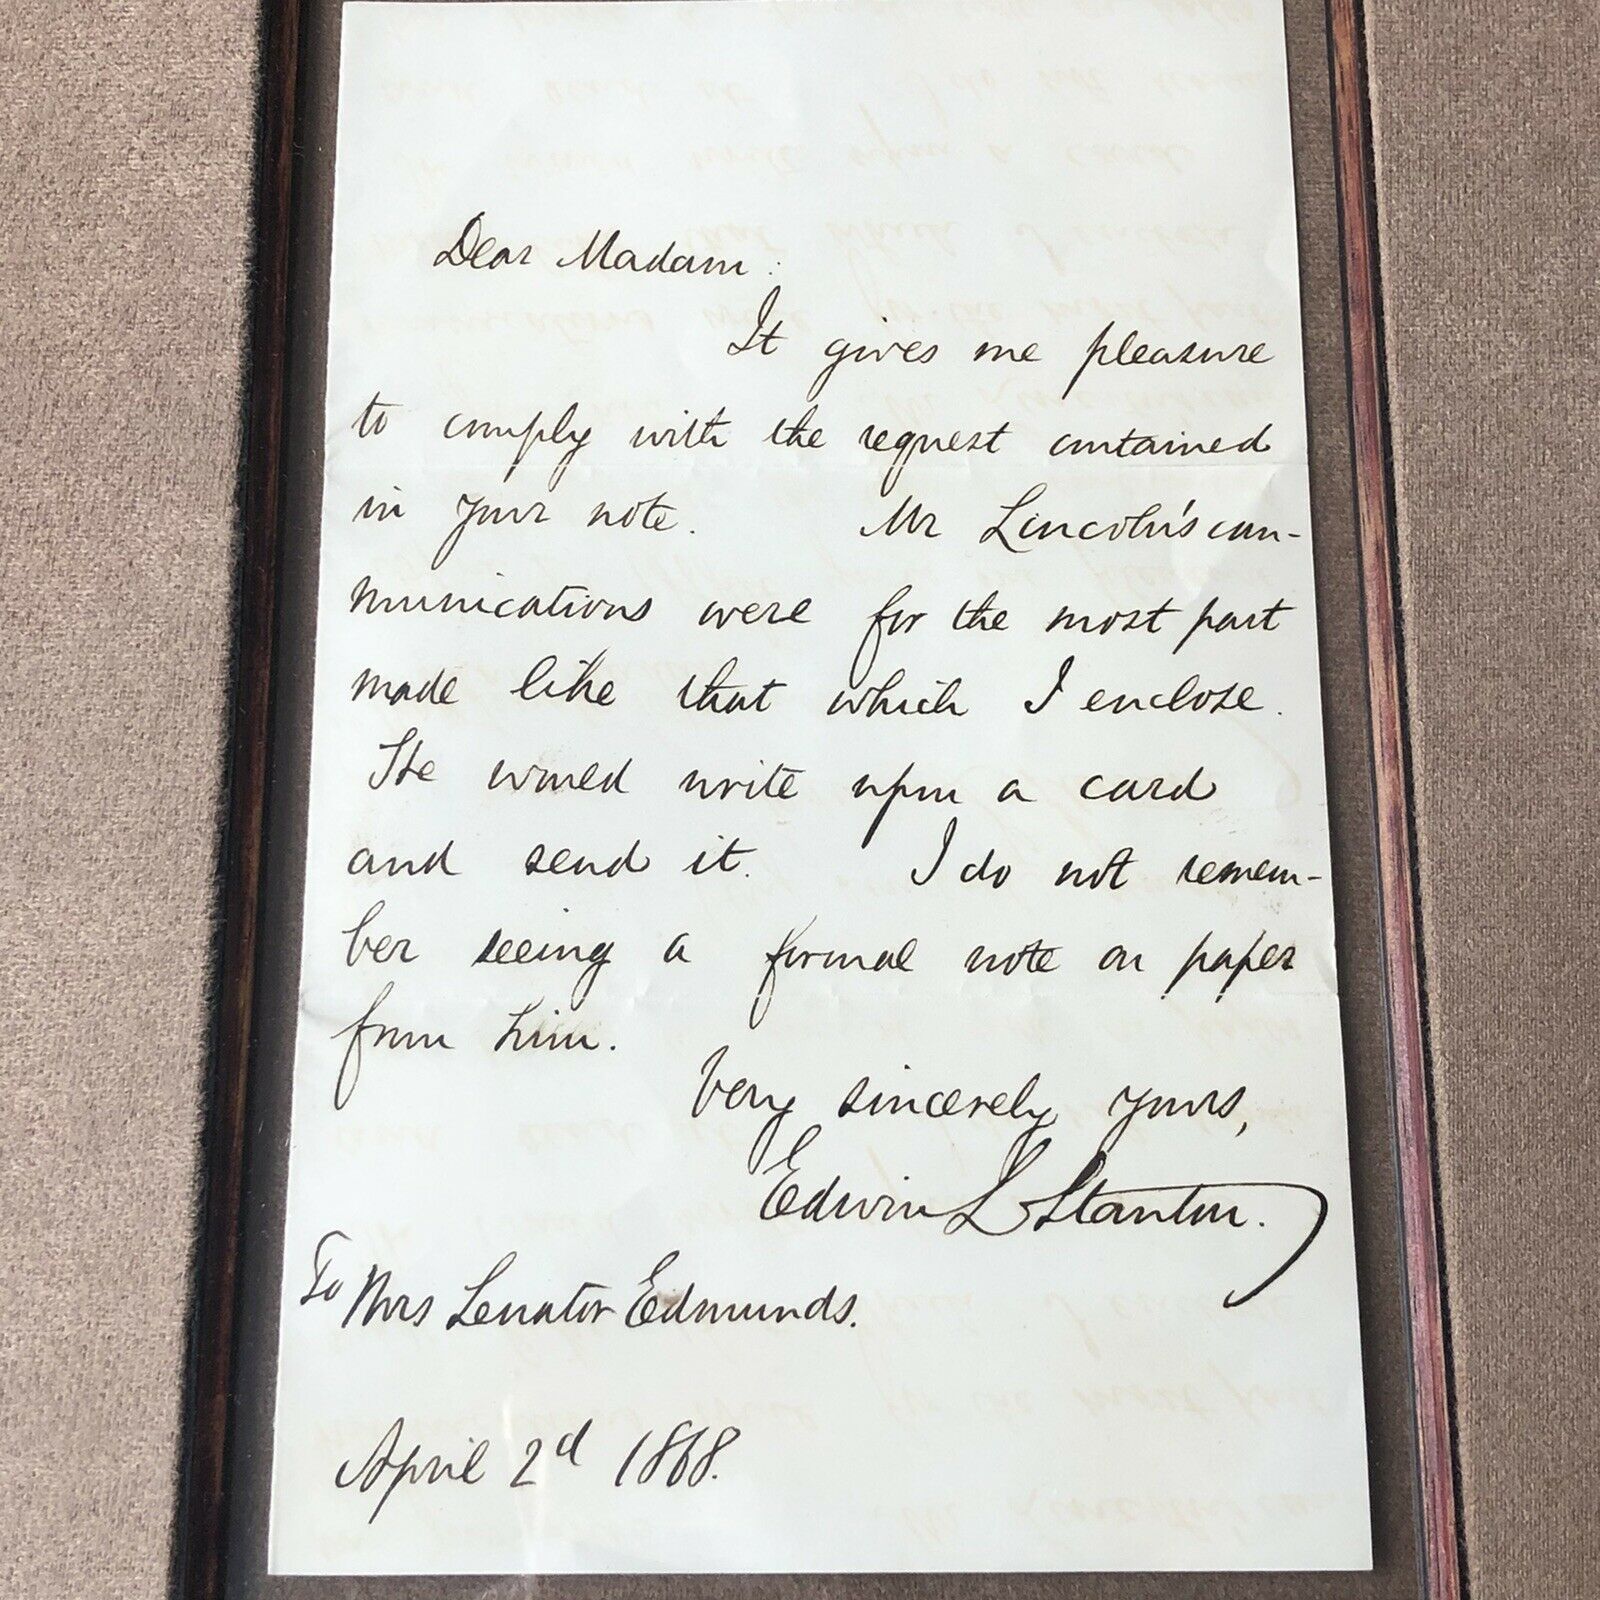 Dear Madam:
It gives me pleasure
to comply with the request contained
in your note. Mr Lincoln's com-
munications were for the most part
made like that which I enclose.
He would write upon a card
and send it. I do not remem-
ber seeing a formal note on paper
from him.
Very sincerely yours,
Edwin L Stanton.
To Mrs Senator Edmunds.
April 2d 1868.